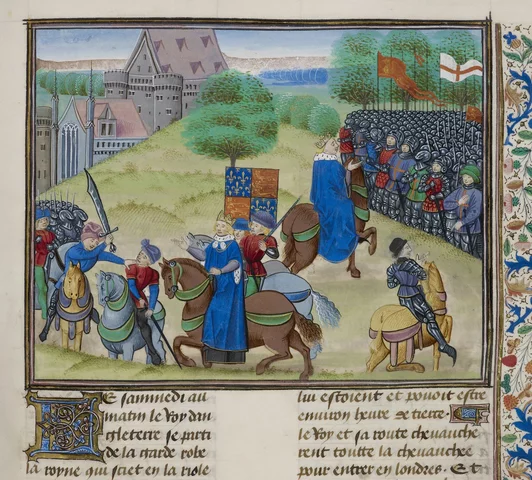 Le sammedi au
matin le Roy dan
gleterre se parti
de la garde robe
la royne qui siet en la riole
liu estoient et povoit estre
environ heure de tierce.
le Roy et sa route chevauche
rent toutte la chevauchee
pour entrer en londres. Et